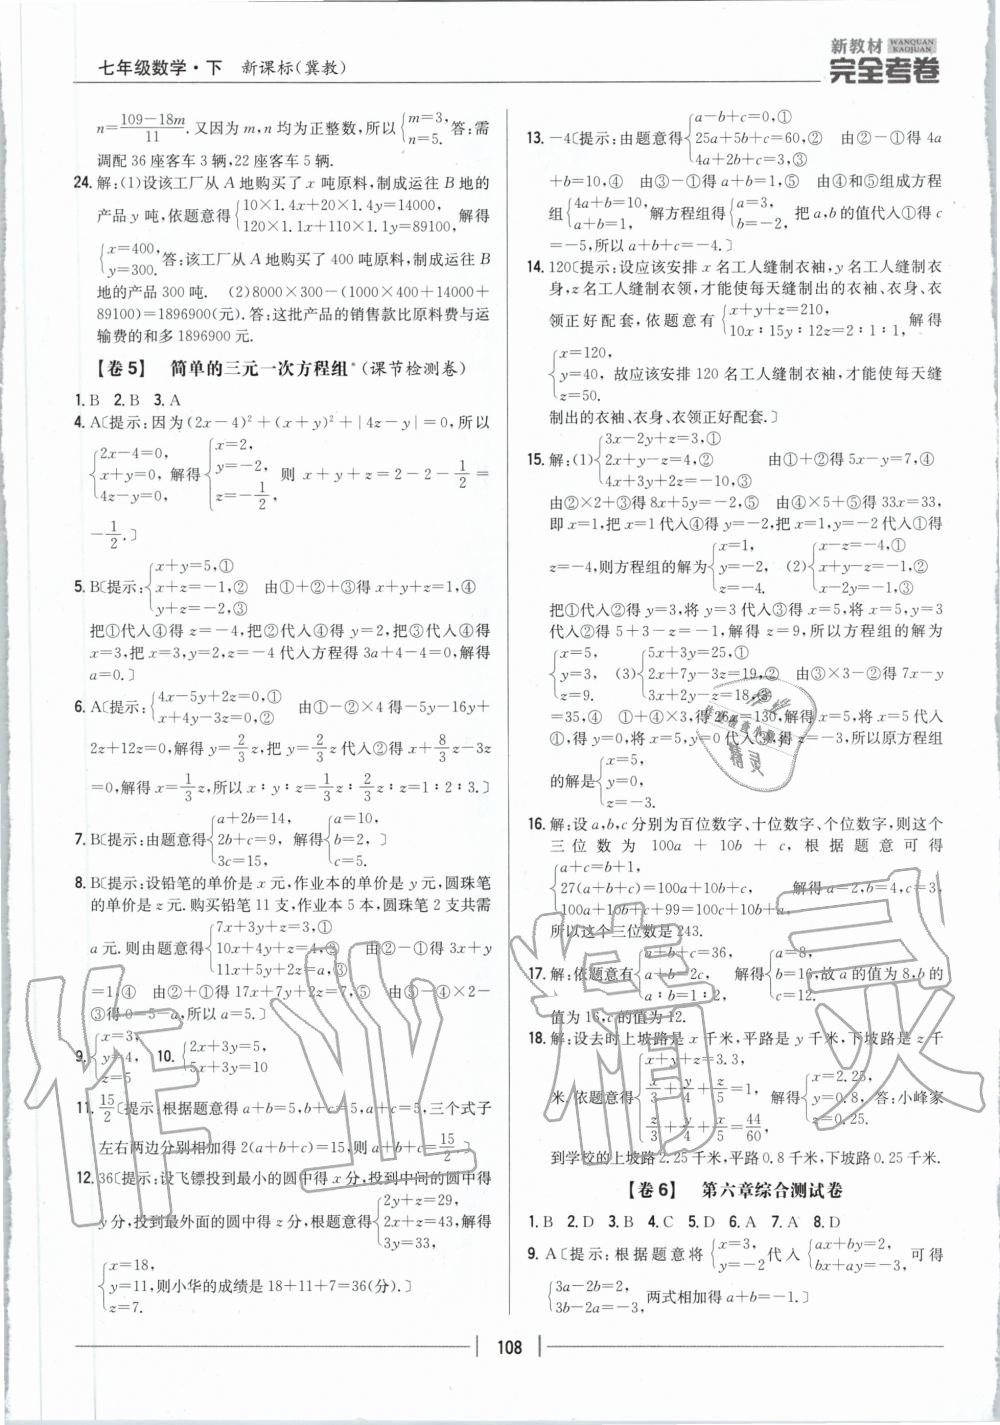 七年级数学·下 新课标(冀教)
新教材 WANQUAN KAOJUAN
完全考卷
n=\frac{109-18m}{11}. 又因为 m,n 均为正整数,所以{m=3, n=5. 答:需
调配 36 座客车 3 辆,22 座客车 5 辆.
24. 解:(1)设该工厂从 A 地购买了 x 吨原料,制成运往 B 地的
产品 y 吨,依题意得{10×1.4x+20×1.4y=14000, 120×1.1x+110×1.1y=89100, 解得
{x=400, y=300. 答:该工厂从 A 地购买了 400 吨原料,制成运往 B
地的产品 300 吨. (2)8000×300-(1000×400+14000+
89100)=1896900(元). 答:这批产品的销售款比原料费与运
输费的和多 1896900 元.
【卷 5】 简单的三元一次方程组*(课节检测卷)
1. B 2. B 3. A
4. A〔提示:因为 (2x-4)²+(x+y)²+|4z-y|=0,所以
{2x-4=0, x+y=0, 4z-y=0, 解得{x=2, y=-2, z=-\frac{1}{2}, 则 x+y+z=2-2-\frac{1}{2}=
-\frac{1}{2}.〕
5. B〔提示:{x+y=5,① x+z=-1,② y+z=-2,③ 由①+②+③得 x+y+z=1,④
把①代入④得 z=-4,把②代入④得 y=2,把③代入④得
x=3,把 x=3,y=2,z=-4 代入方程得 3a+4-4=0,解得
a=0.〕
6. A〔提示:{4x-5y+2z=0,① x+4y-3z=0,② 由①-②×4 得-5y-16y+
2z+12z=0,解得 y=\frac{2}{3}z,把 y=\frac{2}{3}z 代入②得 x+\frac{8}{3}z-3z
=0,解得 x=\frac{1}{3}z,所以 x∶y∶z=\frac{1}{3}z∶\frac{2}{3}z∶z=1∶2∶3.〕
7. B〔提示:由题意得{a+2b=14, 2b+c=9, 3c=15, 解得{a=10, b=2, c=5.〕
8. B〔提示:设铅笔的单价是 x 元,作业本的单价是 y 元,圆珠笔
的单价是 z 元. 购买铅笔 11 支,作业本 5 本,圆珠笔 2 支共需
a 元. 则由题意得{7x+3y+z=3,① 10x+4y+z=4,② 11x+5y+2z=a,③ 由②-①得 3x+y
=1,④ 由②+①得 17x+7y+2z=7,⑤ 由⑤-④×2-
③得 0=5-a,所以 a=5.〕
9. {x=3, y=4, z=5 10. {2x+3y=5, 5x+3y=3
11. \frac{15}{2}〔提示:根据题意得 a+b=5,b+c=5,a+c=5,三个式子
左右两边分别相加得 2(a+b+c)=15,则 a+b+c=\frac{15}{2}.〕
12. 36〔提示:设飞镖投到最小的圆中得 x 分,投到中间的圆中得
y 分,投到最外面的圆中得 z 分,根据题意得{2y+z=29, 2x+z=43, 3y=33, 解得
{x=18, y=11, z=7. 则小华的成绩是 18+11+7=36(分).〕
13. -4〔提示:由题意得{a-b+c=0,① 25a+5b+c=60,② 4a+2b+c=3,③ 由②-①得 4a
+b=10,④ 由③-①得 a+b=1,⑤ 由④和⑤组成方程
组{4a+b=10, a+b=1, 解方程组得{a=3, b=-2, 把 a,b 的值代入①得 c
=-5,所以 a+b+c=-4.〕
14. 120〔提示:设应该安排 x 名工人缝制衣袖,y 名工人缝制衣
身,z 名工人缝制衣领,才能使每天缝制出的衣袖、衣身、衣
领正好配套,依题意有{x+y+z=210, 10x∶15y∶12z=2∶1∶1, 解得
{x=120, y=40, z=50. 故应该安排 120 名工人缝制衣袖,才能使每天缝
制出的衣袖、衣身、衣领正好配套.〕
15. 解:(1){3x-2y+z=3,① 2x+y-z=4,② 4x+3y+2z=-10,③ 由①+②得 5x-y=7,④
由②×2+③得 8x+5y=-2,⑤ 由④×5+⑤得 33x=33,
即 x=1,把 x=1 代入④得 y=-2,把 x=1,y=-2 代入①得
z=-4,则方程组的解为{x=1, y=-2, z=-4. (2){x-z=-4,① x+y-z=-1,② x-2y=-1,③
把①代入②得 y=3,将 y=3 代入③得 x=5,将 x=5,y=3
代入②得 5+3-z=-1,解得 z=9,所以方程组的解为
{x=5, y=3, z=9. (3){5x+3y=25,① 2x+7y-3z=19,② 3x+2y-z=18,③ 由③×3-②得 7x-y
=35,④ ①+④×3,得 26x=130,解得 x=5,将 x=5 代入
①,得 y=0,将 x=5,y=0 代入③,得 z=-3,所以原方程组
的解是{x=5, y=0, z=-3.
16. 解:设 a,b,c 分别为百位数字、十位数字、个位数字,则这个
三位数为 100a+10b+c,根据题意可得
{a+c=b+1, 27(a+b+c)=100a+10b+c, 100a+10b+c+99=100c+10b+a, 解得 a=2,b=4,c=3,
所以这个三位数是 243.
17. 解:依题意有{a+b+c=36, a+b=2c, a∶b=1∶2, 解得{a=8, b=16, c=12. 故 a 的值为 8,b 的
值为 16,c 的值为 12.
18. 解:设去时上坡路是 x 千米,平路是 y 千米,下坡路是 z 千
米. 依题意得{x+y+z=3.3, \frac{x}{3}+\frac{y}{4}+\frac{z}{5}=1, \frac{z}{3}+\frac{y}{4}+\frac{x}{5}=\frac{44}{60}, 解得{x=2.25, y=0.8, z=0.25. 答:小峰家
到学校的上坡路 2.25 千米,平路 0.8 千米,下坡路 0.25 千米.
【卷 6】 第六章综合测试卷
1. B 2. D 3. B 4. C 5. D 6. A 7. A 8. D
9. A〔提示:根据题意将{x=3, y=-2 代入{ax+by=2, bx+ay=-3, 可得
{3a-2b=2, 3b-2a=-3, 两式相加得 a+b=-1.〕
108
作业精灵
精灵